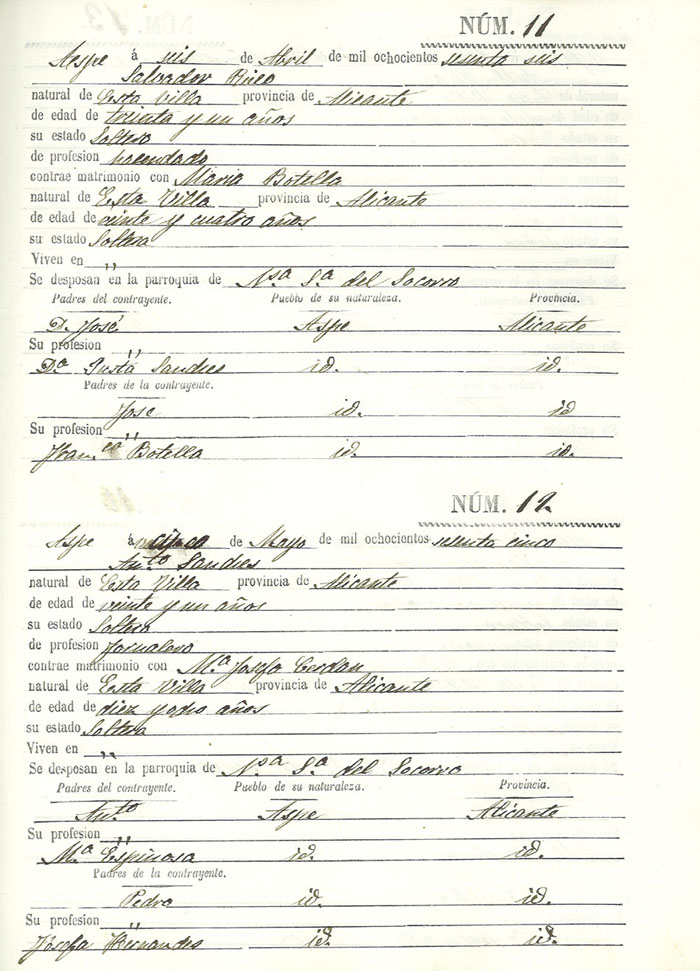 NÚM. 11
Aspe á seis de Abril de mil ochocientos sesenta seis
Salvador Rico
natural de Esta Villa provincia de Alicante
de edad de treinta y un años
su estado Soltero
de profesion hacendado
contrae matrimonio con Maria Botella
natural de Esta Villa provincia de Alicante
de edad de veinte y cuatro años
su estado Soltera
Viven en "
Se desposan en la parroquia de Nsa Sa del Socorro
Padres del contrayente. Pueblo de su naturaleza. Provincia.
D. José Aspe Alicante
Su profesion "
Da Justa Sandres id. id.
Padres de la contrayente.
Jose id. id
Su profesion "
Fran.ca Botella id. id.
NÚM. 12
Aspe á cinco de Mayo de mil ochocientos sesenta cinco
Anto Sandres
natural de Esta Villa provincia de Alicante
de edad de veinte y un años
su estado Soltero
de profesion Jornalero
contrae matrimonio con Ma Josefa Cerdan
natural de Esta Villa provincia de Alicante
de edad de diez y ocho años
su estado Soltera
Viven en "
Se desposan en la parroquia de Nsa Sa del Socorro
Padres del contrayente. Pueblo de su naturaleza. Provincia.
Anto Aspe Alicante
Su profesion "
Ma Espinosa id. id.
Padres de la contrayente.
Pedro id. id.
Su profesion "
Josefa Hernandes id. id.